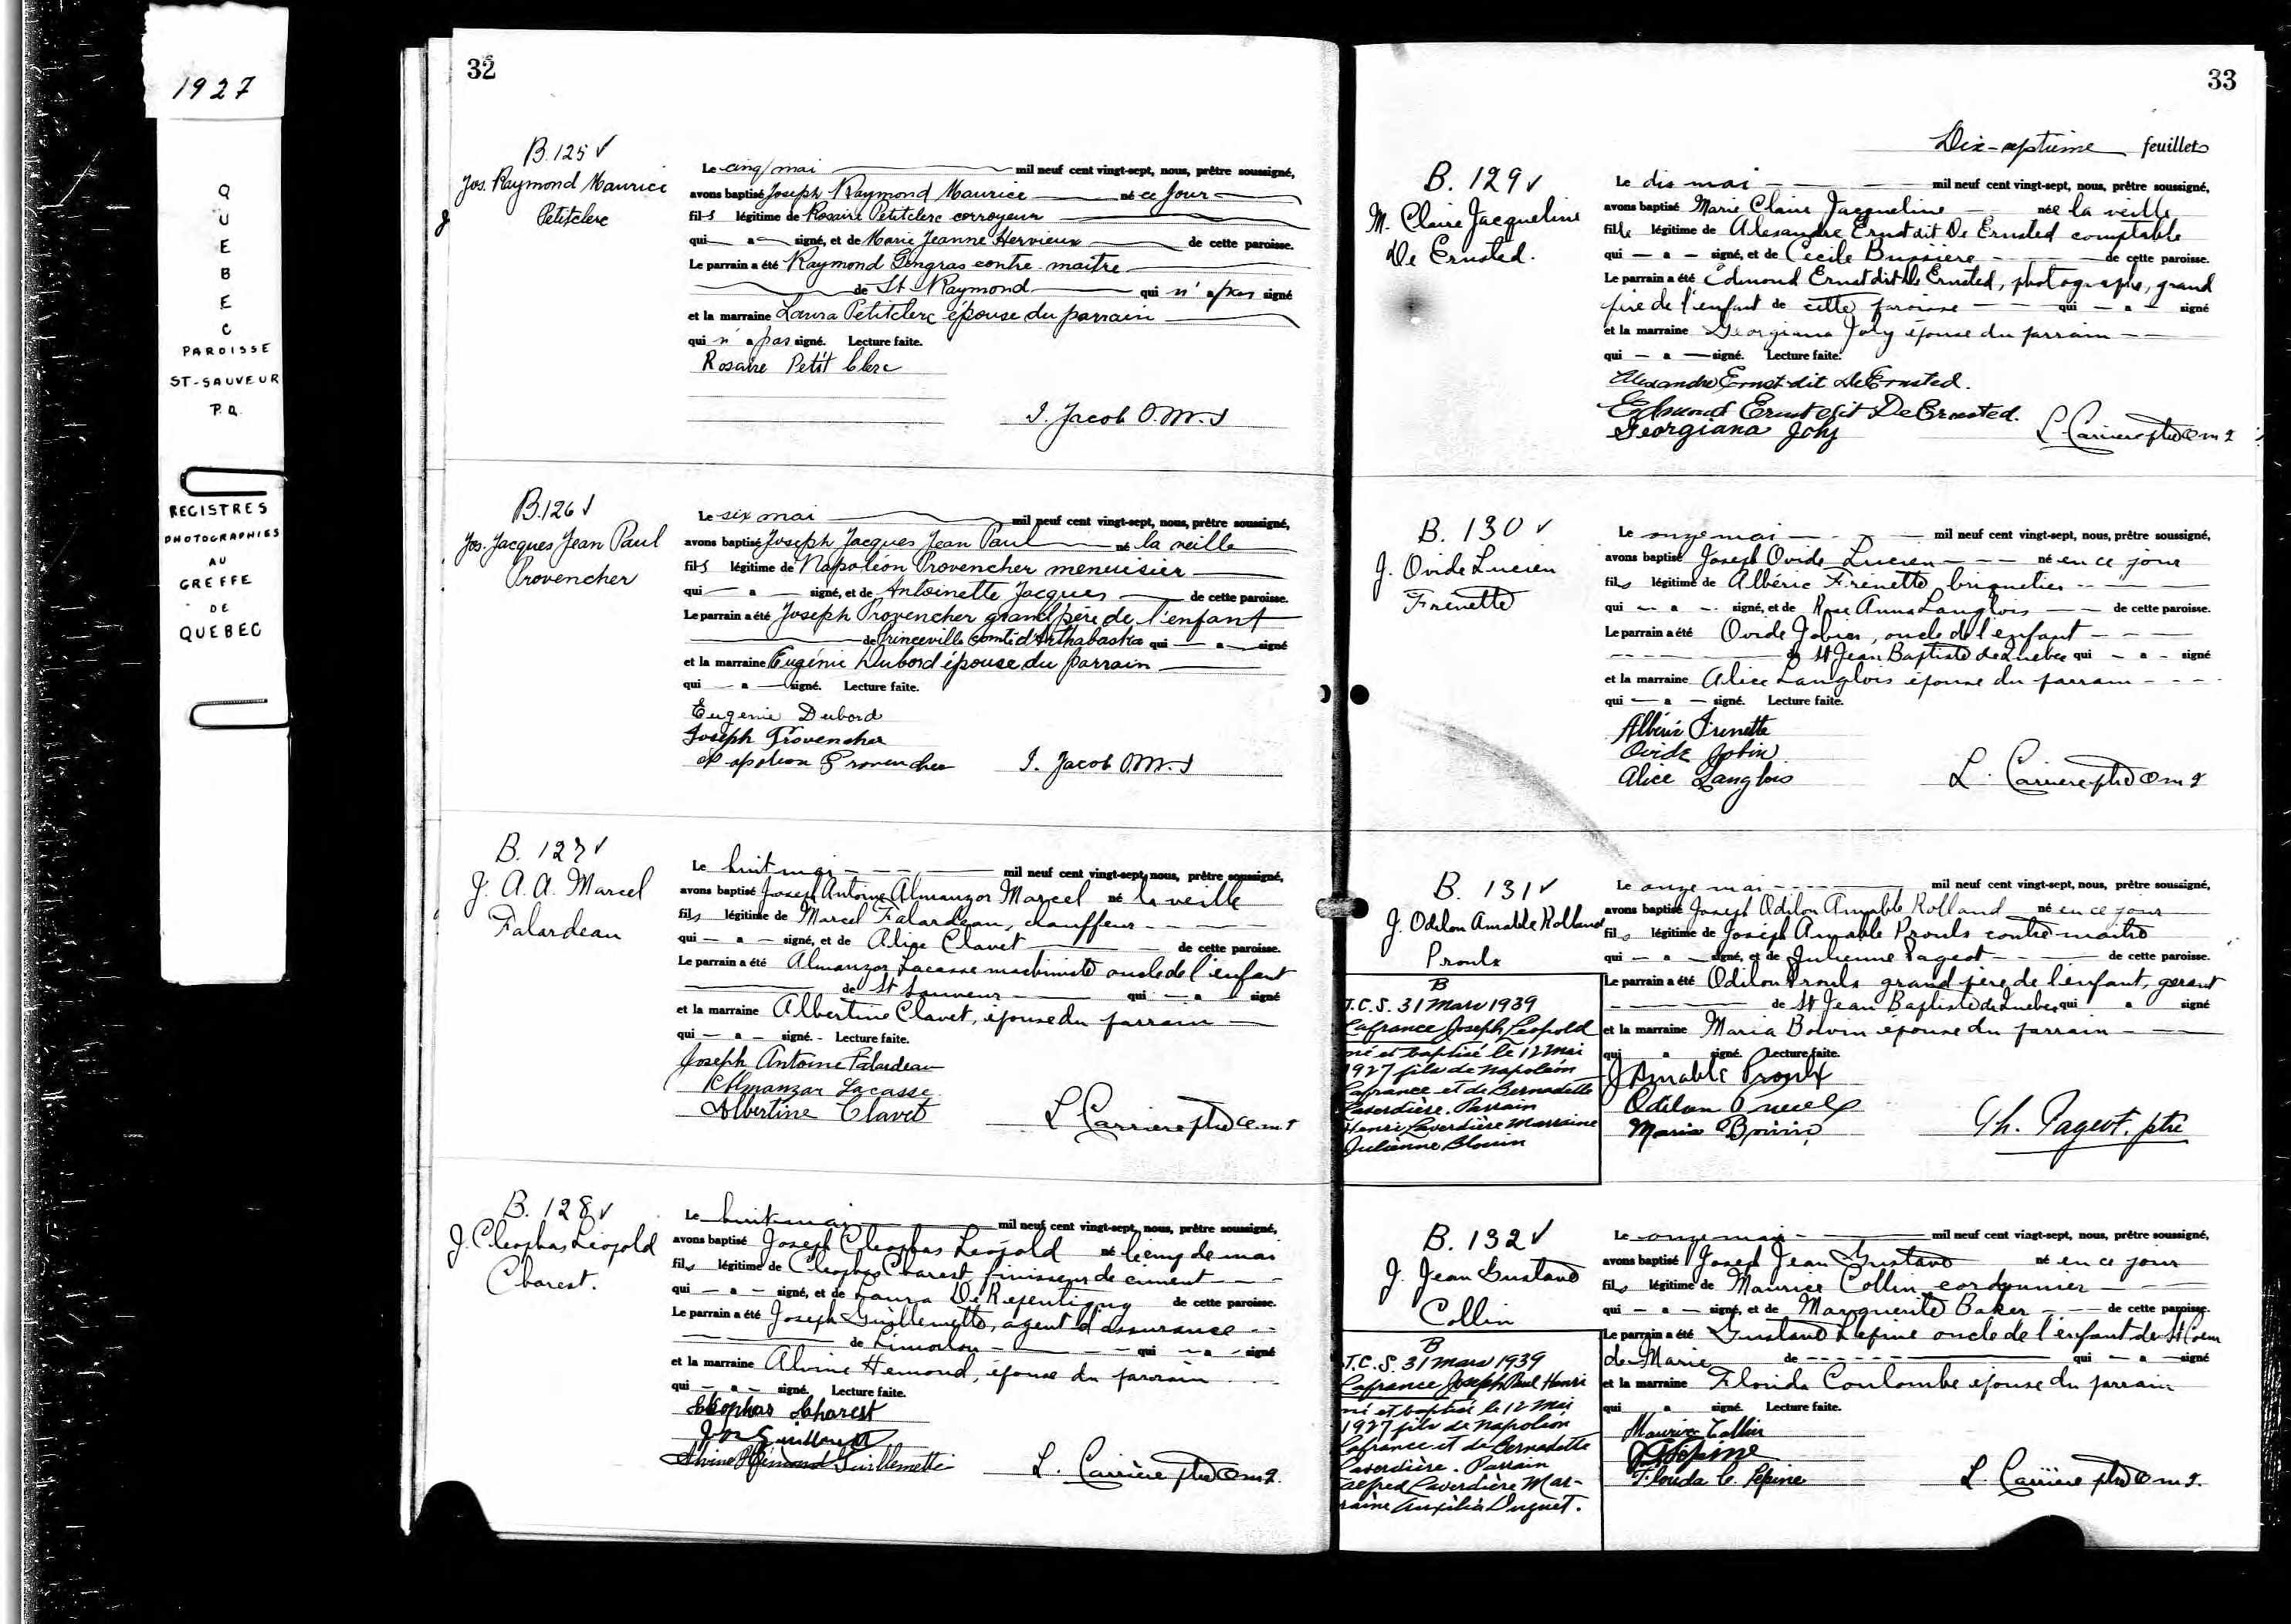 1927
QUEBEC
PAROISSE
ST-SAUVEUR
P.Q.
REGISTRES
PHOTOGRAPHIES
AU
GREFFE
DE
QUEBEC
32
B. 125 ✓
Jos. Raymond Maurice
Petitclerc
Le cinq mai mil neuf cent vingt-sept, nous, prêtre soussigné,
avons baptisé Joseph Raymond Maurice né ce jour
fils légitime de Rosaire Petitclerc corroyeur
qui — a — signé, et de Marie Jeanne Hervieux de cette paroisse.
Le parrain a été Raymond Gingras contre-maitre
de St Raymond qui n' a pas signé
et la marraine Laura Petitclerc épouse du parrain
qui n' a pas signé. Lecture faite.
Rosaire Petit Clerc
J. Jacob O.M.I
B. 126 ✓
Jos. Jacques Jean Paul
Provencher
Le six mai mil neuf cent vingt-sept, nous, prêtre soussigné,
avons baptisé Joseph Jacques Jean Paul né la veille
fils légitime de Napoléon Provencher menuisier
qui — a — signé, et de Antoinette Jacques de cette paroisse.
Le parrain a été Joseph Provencher grand père de l'enfant
de Princeville comté d'Arthabaska qui — a — signé
et la marraine Eugénie Dubord épouse du parrain
qui — a — signé. Lecture faite.
Eugenie Dubord
Joseph Provencher
Napoleon Provencher
J. Jacob O.M.I
B. 127 ✓
J. A. A. Marcel
Falardeau
Le huit mai mil neuf cent vingt-sept, nous, prêtre soussigné,
avons baptisé Joseph Antoine Almanzor Marcel né la veille
fils légitime de Marcel Falardeau, chauffeur
qui — a — signé, et de Alice Clavet de cette paroisse.
Le parrain a été Almanzor Lacasse machiniste oncle de l'enfant
de St Sauveur qui — a signé
et la marraine Albertine Clavet, épouse du parrain
qui — a — signé. - Lecture faite.
Joseph Antoine Falardeau
Almanzar Lacasse
Albertine Clavet
L Carriere ptre O.m.I
B. 128 ✓
J. Cleophas Léopold
Charest.
Le huit mai mil neuf cent vingt-sept, nous, prêtre soussigné,
avons baptisé Joseph Cleophas Léopold né le cinq de mai
fils légitime de Cleophas Charest finisseur de ciment
qui — a — signé, et de Laura De Repentigny de cette paroisse.
Le parrain a été Joseph Guillemette, agent d'assurance
de Limoilou qui — a — signé
et la marraine Alvine Hemond, épouse du parrain
qui — a — signé. Lecture faite.
Cléophas Charest
Jos Guillemette
Alvine Hémond Guillemette
L. Carrière ptre O m I.
33
Dix-septième feuillet
B. 129 ✓
M. Claire Jacqueline
De Ernsted.
Le dix mai mil neuf cent vingt-sept, nous, prêtre soussigné,
avons baptisé Marie Claire Jacqueline née la veille
fille légitime de Alexandre Ernst dit De Ernsted comptable
qui — a — signé, et de Cecile Bussiere de cette paroisse.
Le parrain a été Edmond Ernst dit De Ernsted, photographe, grand
père de l'enfant de cette paroisse qui — a — signé
et la marraine Georgiana Joly épouse du parrain
qui — a — signé. Lecture faite.
Alexandre Ernst dit De Ernsted.
Edmond Ernst dit De Ernsted.
Georgiana Joly
L Carriere ptre O m I
B. 130 ✓
J. Ovide Lucien
Frenette
Le onze mai mil neuf cent vingt-sept, nous, prêtre soussigné,
avons baptisé Joseph Ovide Lucien né en ce jour
fils légitime de Albéric Frenette briquetier
qui — a — signé, et de Rose Anna Langlois de cette paroisse.
Le parrain a été Ovide Jobin, oncle de l'enfant
de St Jean Baptiste de Quebec qui — a — signé
et la marraine Alice Langlois épouse du parrain
qui — a — signé. Lecture faite.
Albéric Frenette
Ovide Jobin
Alice Langlois
L. Carriere ptre O m I
B. 131 ✓
J. Odilon Amable Rolland
Proulx
Le onze mai mil neuf cent vingt-sept, nous, prêtre soussigné,
avons baptisé Joseph Odilon Amable Rolland né en ce jour
fils légitime de Joseph Amable Proulx contre-maitre
qui — a — signé, et de Julienne Pageot de cette paroisse.
Le parrain a été Odilon Proulx grand-père de l'enfant, gerant
de St Jean Baptiste de Quebec qui a signé
et la marraine Maria Boivin epouse du parrain
qui a signé. Lecture faite.
J Amable Proulx
Odilon Proulx
Maria Boivin
Th. Pageot, ptre
B
T.C.S. 31 Mars 1939
Lafrance Joseph Léopold
né et baptisé le 12 mai
1927 fils de Napoléon
Lafrance et de Bernadette
Laverdière. Parrain
Henri Laverdière Marraine
Julienne Blouin
B. 132 ✓
J. Jean Gustave
Collin
Le onze mai mil neuf cent vingt-sept, nous, prêtre soussigné,
avons baptisé Joseph Jean Gustave né en ce jour
fils légitime de Maurice Collin cordonnier
qui — a — signé, et de Marguerite Baker de cette paroisse.
Le parrain a été Gustave Lepine oncle de l'enfant de St Coeur
de Marie de qui — a — signé
et la marraine Florida Coulombe épouse du parrain
qui a signé. Lecture faite.
Maurice Collin
G Lépine
Florida C. Lépine
L. Carrière ptre O m I.
B
T.C.S. 31 mars 1939
Lafrance Joseph Paul Henri
né et baptisé le 12 Mai
1927 fils de Napoléon
Lafrance et de Bernadette
Laverdière. Parrain
Alfred Laverdière Mar-
raine Auxilia Duquet.